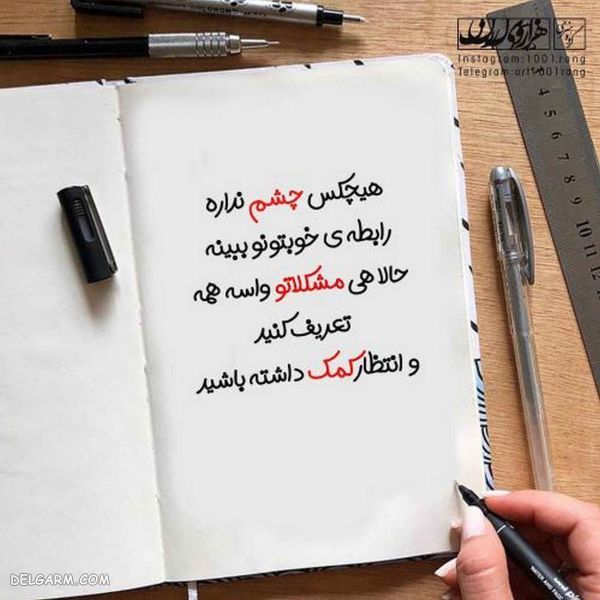 هزار و یک رنگ
Instagram:1001.rang
Telegram:art1001rang
هیچکس چشم نداره
رابطه ی خوبتونو ببینه
حالا هی مشکلاتو واسه همه
تعریف کنید
و انتظار کمک داشته باشید
4 5 6 7 8 9 10 11 12
DELGARM.COM